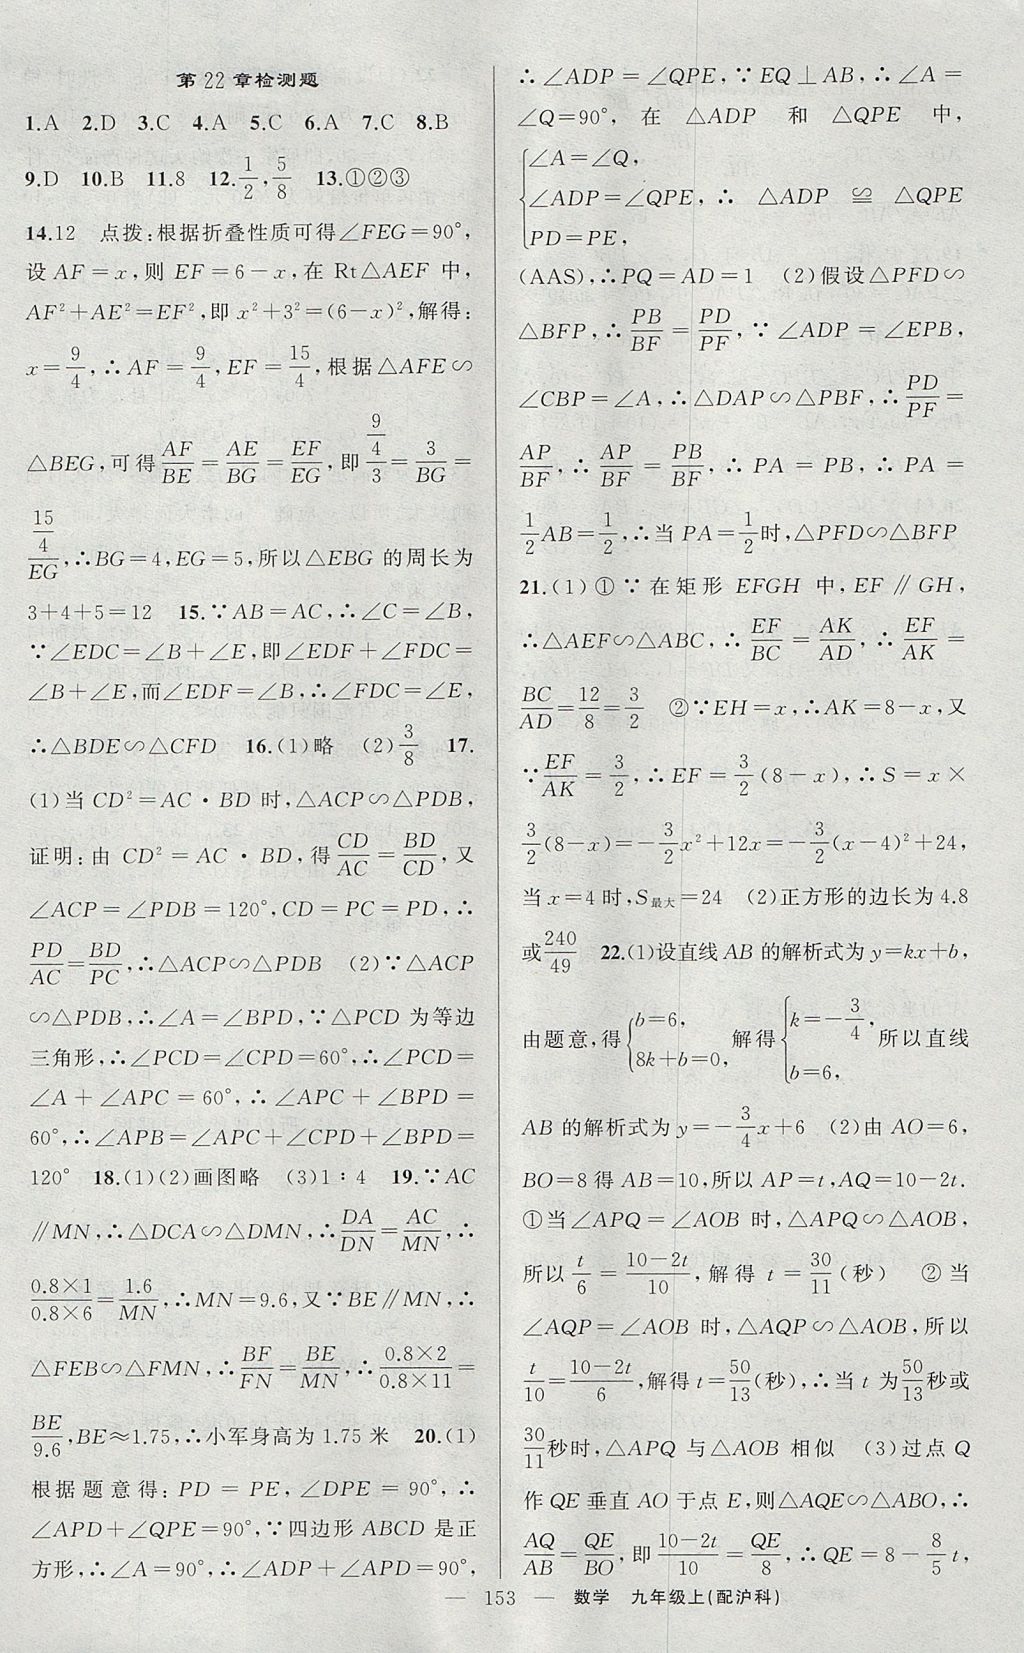 第22章检测题
1.A 2.D 3.C 4.A 5.C 6.A 7.C 8.B
9.D 10.B 11.8 12.1/2,5/8 13.①②③
14.12 点拨:根据折叠性质可得∠FEG=90°,
设AF=x,则EF=6-x,在Rt△AEF中,
AF²+AE²=EF²,即x²+3²=(6-x)²,解得:
x=9/4,∴AF=9/4,EF=15/4,根据△AFE∽
△BEG,可得AF/BE=AE/BG=EF/EG,即(9/4)/3=3/BG=
(15/4)/EG,∴BG=4,EG=5,所以△EBG的周长为
3+4+5=12 15.∵AB=AC,∴∠C=∠B,
∵∠EDC=∠B+∠E,即∠EDF+∠FDC=
∠B+∠E,而∠EDF=∠B,∴∠FDC=∠E,
∴△BDE∽△CFD 16.(1)略 (2)3/8 17.
(1)当CD²=AC·BD时,△ACP∽△PDB,
证明:由CD²=AC·BD,得CD/AC=BD/CD,又
∠ACP=∠PDB=120°,CD=PC=PD,∴
PD/AC=BD/PC,∴△ACP∽△PDB (2)∵△ACP
∽△PDB,∴∠A=∠BPD,∵△PCD为等边
三角形,∴∠PCD=∠CPD=60°,∴∠PCD=
∠A+∠APC=60°,∴∠APC+∠BPD=
60°,∴∠APB=∠APC+∠CPD+∠BPD=
120° 18.(1)(2)画图略 (3)1:4 19.∵AC
∥MN,∴△DCA∽△DMN,∴DA/DN=AC/MN,∴
0.8×1/0.8×6=1.6/MN,∴MN=9.6,又∵BE∥MN,∴
△FEB∽△FMN,∴BF/FN=BE/MN,∴0.8×2/0.8×11=
BE/9.6,BE≈1.75,∴小军身高为1.75米 20.(1)
根据题意得:PD=PE,∠DPE=90°,∴
∠APD+∠QPE=90°,∵四边形ABCD是正
方形,∴∠A=90°,∴∠ADP+∠APD=90°,
∴∠ADP=∠QPE,∵EQ⊥AB,∴∠A=
∠Q=90°,在△ADP和△QPE中,
∠A=∠Q,
∠ADP=∠QPE,∴△ADP≌△QPE
PD=PE,
(AAS),∴PQ=AD=1 (2)假设△PFD∽
△BFP,∴PB/BF=PD/PF,∵∠ADP=∠EPB,
∠CBP=∠A,∴△DAP∽△PBF,∴PD/PF=
AP/BF,∴AP/BF=PB/BF,∴PA=PB,∴PA=
1/2AB=1/2,∴当PA=1/2时,△PFD∽△BFP
21.(1)①∵在矩形EFGH中,EF∥GH,
∴△AEF∽△ABC,∴EF/BC=AK/AD,∴EF/AK=
BC/AD=12/8=3/2 ②∵EH=x,∴AK=8-x,又
∵EF/AK=3/2,∴EF=3/2(8-x),∴S=x×
3/2(8-x)=-3/2x²+12x=-3/2(x-4)²+24,
当x=4时,S最大=24 (2)正方形的边长为4.8
或240/49 22.(1)设直线AB的解析式为y=kx+b,
由题意,得{b=6,8k+b=0,解得{k=-3/4,b=6,所以直线
AB的解析式为y=-3/4x+6 (2)由AO=6,
BO=8得AB=10,所以AP=t,AQ=10-2t.
①当∠APQ=∠AOB时,△APQ∽△AOB,
所以t/6=10-2t/10,解得t=30/11(秒) ②当
∠AQP=∠AOB时,△AQP∽△AOB,所以
t/10=10-2t/6,解得t=50/13(秒),∴当t为50/13秒或
30/11秒时,△APQ与△AOB相似 (3)过点Q
作QE垂直AO于点E,则△AQE∽△ABO,∴
AQ/AB=QE/BO,即10-2t/10=QE/8,∴QE=8-8/5t,
— 153 — 数学 九年级上(配沪科)